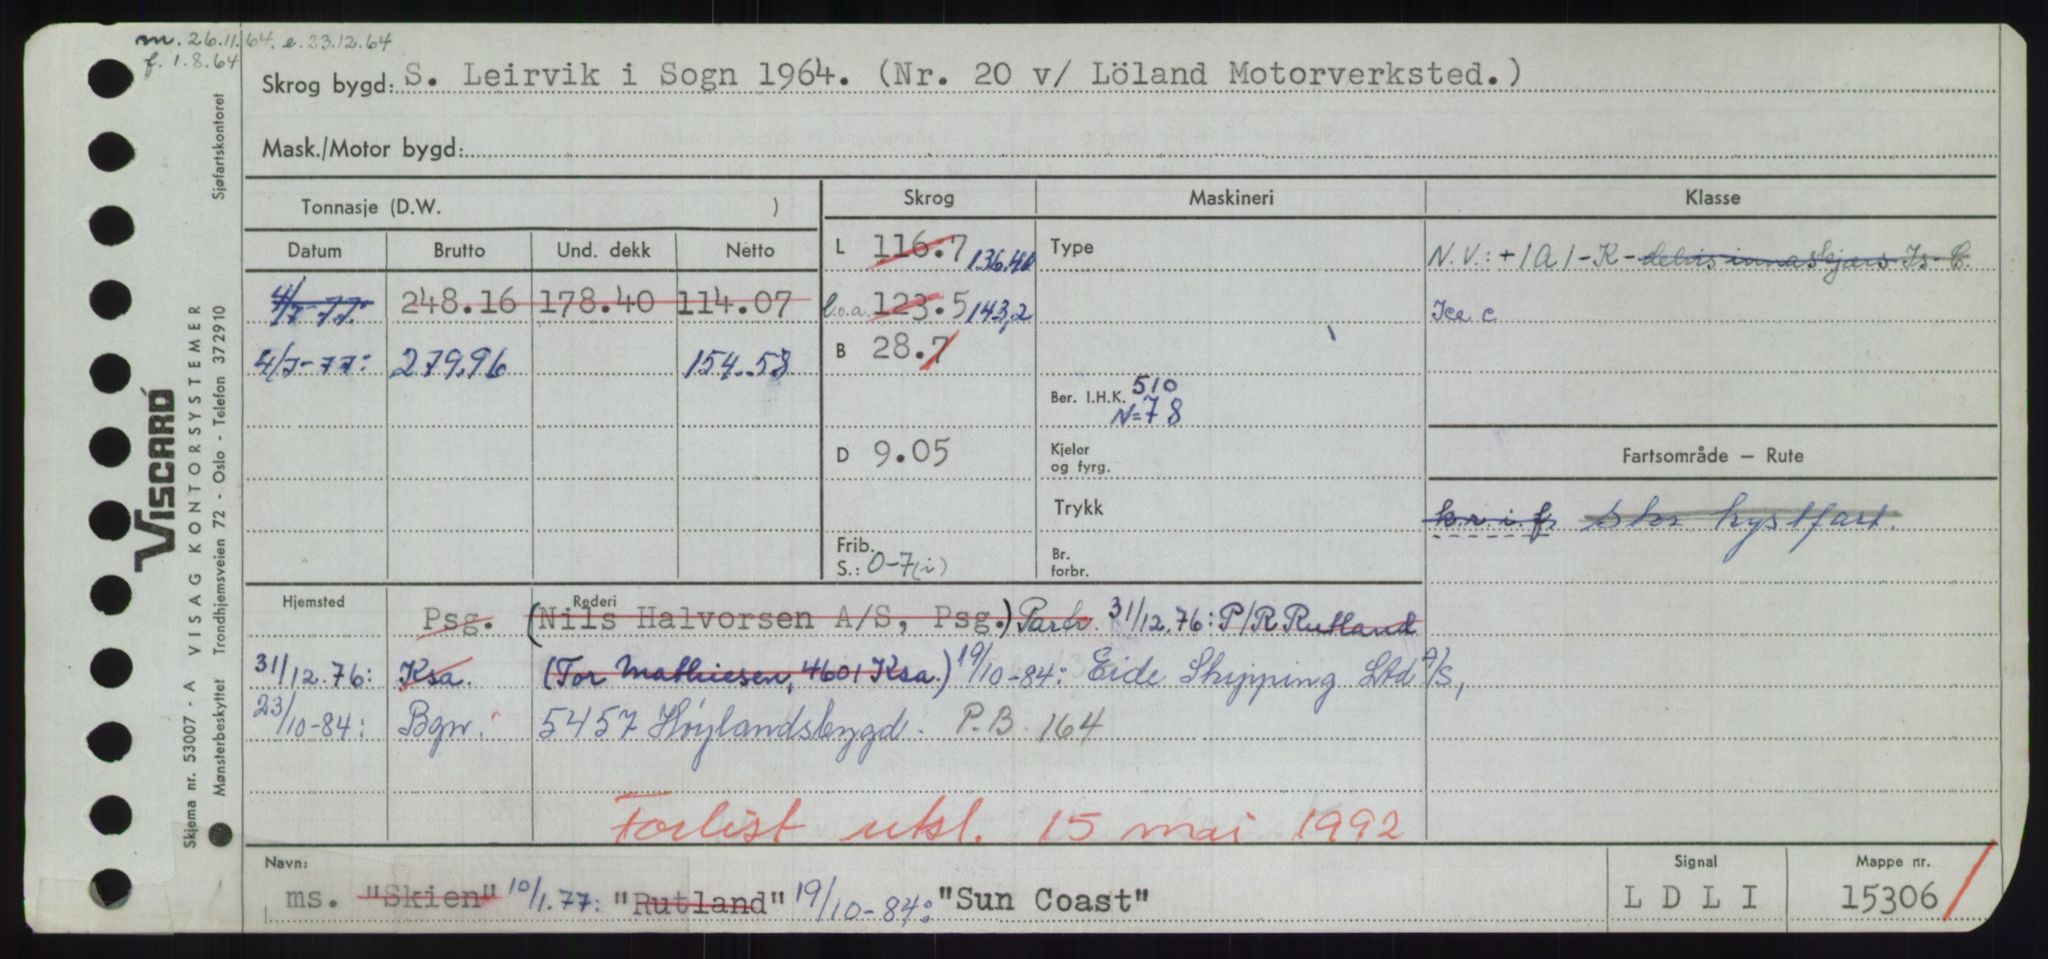 m. 26.11.64. e. 23.12.64
f. 1.8.64
Skrog bygd: S. Leirvik i Sogn 1964. (Nr. 20 v/ Löland Motorverksted.)
Mask./Motor bygd:
Tonnasje (D.W. )
Skrog
Maskineri
Klasse
Datum Brutto Und. dekk Netto
L 116.7 136.40
Type
N.V.: + 1A1 - K - delvis innaskjærs Is-C.
4/7-77. 248.16 178.40 114.07
l.o.a. 123.5 143,2
Ice C
4/7-77: 279,96 154.58
B 28.7
Ber. I.H.K. 510
N=78
D 9.05
Kjeler og fyrg.
Fartsområde — Rute
Trykk
k.r.i.f. Stor kystfart.
Frib.
S.: 0-7(i)
Br. forbr.
Hjemsted
Rederi
Psg. (Nils Halvorsen A/S, Psg.) Partr. 31/12.76: P/R Rutland
31/12.76: Ksa. (Tor Mathiesen, 4601 Ksa.) 19/10-84: Eide Shipping Ltd A/S,
23/10-84: Bgn. 5457 Høylandsbygd. P.B. 164
Forlist utsl. 15 mai 1992
Navn:
ms. "Skien" 10/1.77: "Rutland" 19/10-84: "Sun Coast"
Signal
LDLI
Mappe nr.
15306
VISCARD
VISAG KONTORSYSTEMER
Trondhjemsveien 72 - Oslo - Telefon 372910
Sjøfartskontoret
Skjema nr. 53007 - A
Mønsterbeskyttet